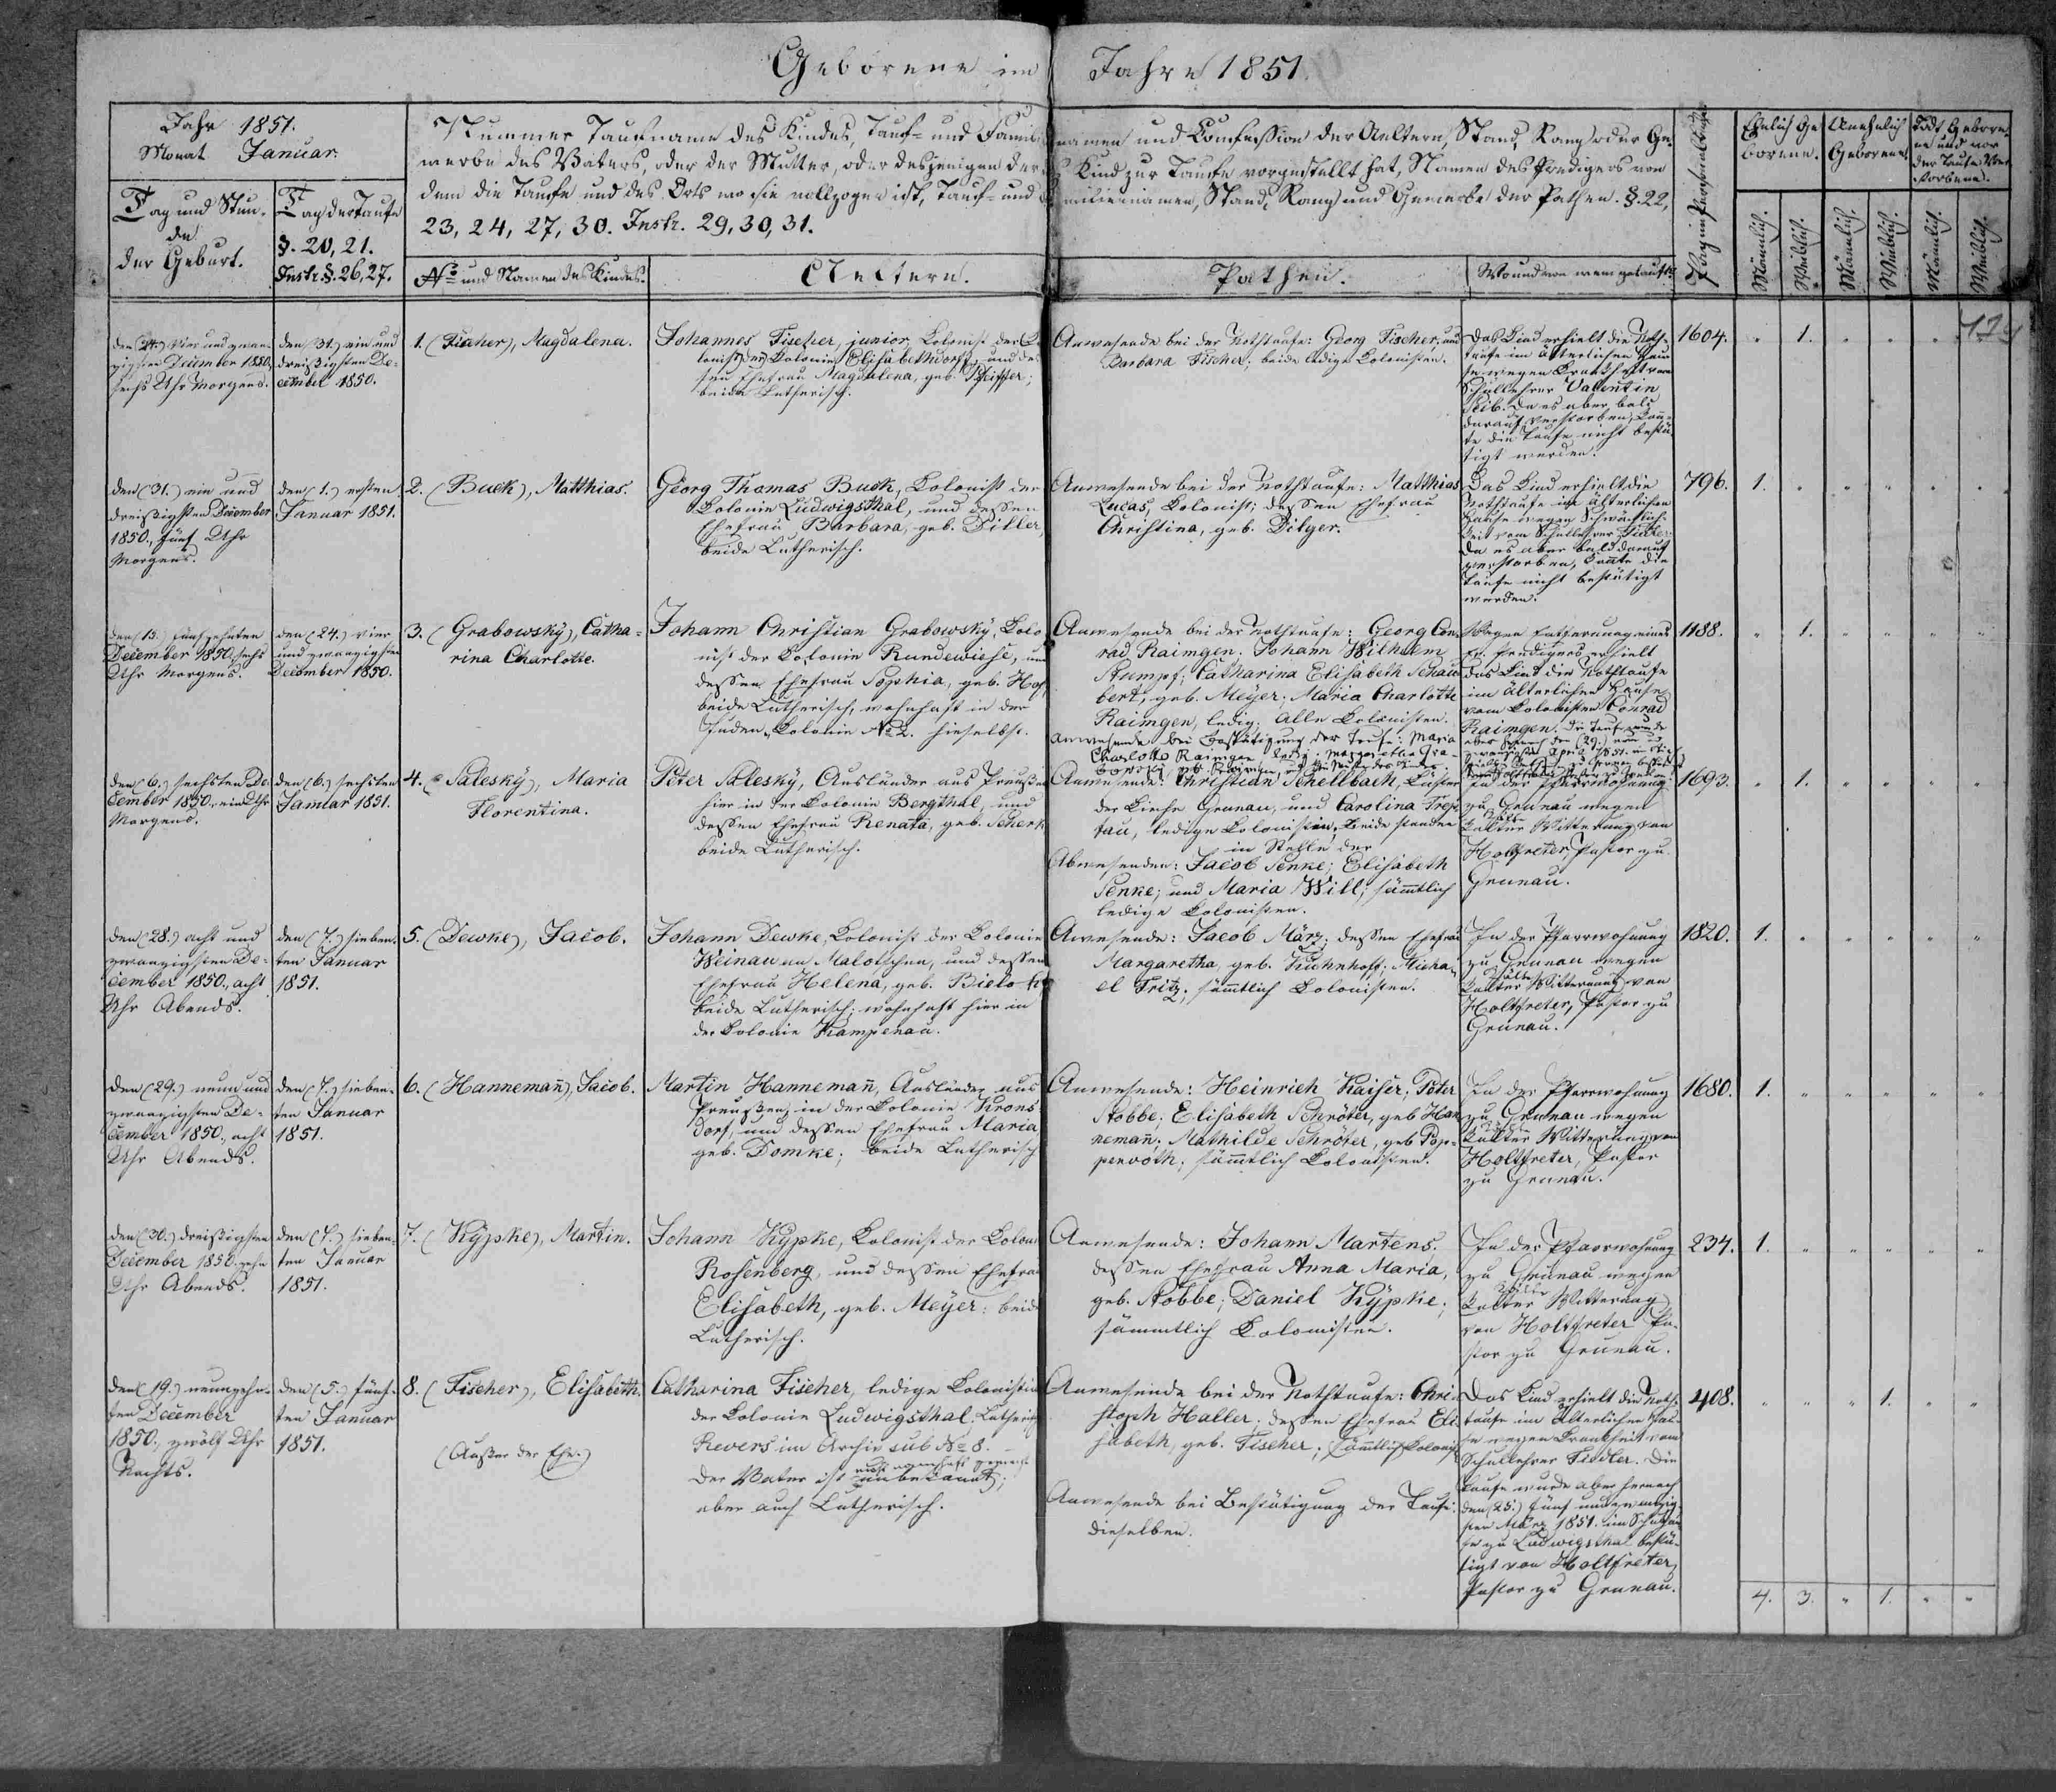 Geborene im Jahre 1851.
Jahr 1851.
Monat Januar.
Tag und Stun-
de
der Geburt.
Tag der Taufe
§. 20, 21.
Instr. §. 26, 27.
Nummer Taufname des Kindes, Tauf- und Famili
namen und Confession der Aeltern, Stand, Rang oder Ge-
werbe des Vaters, oder der Mutter, oder desjenigen der
Kind zur Taufe vorgestellt hat, Namen des Predigers von
dem die Taufe und des Orts wo sie vollzogen ist, Tauf- und
miliennamen, Stand, Rang und Gewerbe der Pathen. §. 22,
23, 24, 27, 30. Instr. 29, 30, 31.
No und Namen des Kindes.
Aeltern.
Pathen.
Wo und von wem getauft.
Pag. im Personalbuche
Ehelich Ge
borene.
Unehelich
Geborene.
Todt Gebore-
ne und vor
der Taufe Ver-
storbene.
Männlich.
Weiblich.
Männlich.
Weiblich.
Männlich.
Weiblich.
den (24.) vier und zwan-
zigsten December 1850,
sechs Uhr Morgens.
den (31.) ein und
dreißigsten De-
cember 1850.
1. (Fischer), Magdalena.
Johannes Fischer, junior, Colonist der
Colonie Elisabethdorff, und des
sen Ehefrau Magdalena, geb. Pfeiffer;
beide Lutherisch.
Anwesende bei der Nothtaufe: Georg Fischer, und
Barbara Fischer; beide ledige Colonisten.
Das Kind erhielt die Noth-
taufe im älterlichen Hau
se wegen Krankheit vom
Schullehrer Valentin
Da es aber bald
darauf verstorben, konn-
te die Taufe nicht bestä-
tigt werden.
1604. " 1. " " " "
den (31.) ein und
dreißigsten December
1850, fünf Uhr
Morgens.
den (1.) ersten
Januar 1851.
2. (Buck), Matthias.
Georg Thomas Buck, Colonist der
Colonie Ludwigsthal, und dessen
Ehefrau Barbara, geb. Diller,
beide Lutherisch.
Anwesende bei der Nothtaufe: Matthias
Lucas, Colonist; dessen Ehefrau
Christina, geb. Dilger.
Das Kind erhielt die
Nothtaufe im älterlichen
Hause wegen Schwächlich-
keit vom Schullehrer Fidler.
Da es aber bald darauf
verstorben, konnte die
Taufe nicht bestätigt
werden.
796. 1. " " " " "
den (15.) fünfzehnten
December 1850, sechs
Uhr Morgens.
den (24.) vier
und zwanzigsten
December 1850.
3. (Grabowsky), Catha-
rina Charlotte.
Johann Christian Grabowsky, Colo
nist der Colonie Rundewiese, und
dessen Ehefrau Sophia, geb. Hof,
beide Lutherisch, wohnhaft in der
Juden-Colonie No 2. hieselbst.
Anwesende bei der Nothtaufe: Georg Con-
rad Raimgen. Johann Wilhelm
Stumpf; Catharina Elisabeth Schau
bert, geb. Meyer; Maria Charlotte
Raimgen, ledig; Alle Colonisten.
Anwesende bei Bestätigung der Taufe: Maria
Charlotte Raimgen ledig; Margaretha Gra-
Wegen Entfernung eines
ev. Predigers erhielt
das Kind die Nothtaufe
im älterlichen Hause
vom Colonisten Conrad
Raimgen. Die Taufe wurde
1188. " 1. " " " "
den (6.) sechsten De-
cember 1850, ein Uhr
Morgens.
den (6.) sechsten
Januar 1851.
4. (Salesky), Maria
Florentina.
Peter Salesky, Ausländer aus Preußen
hier in der Colonie Bergthal, und
dessen Ehefrau Renata, geb. Scherk
beide Lutherisch.
Anwesende: Christian Schellbach, Küster
der Kirche Grunau, und Carolina Trep-
tau, ledige Colonistin; Beide standen
in Stelle der
Abwesenden: Jacob Penke; Elisabeth
Penke; und Maria Will; sämtlich
ledige Colonisten.
In der Pfarrwohnung
zu Grunau wegen
kalter Witterung von
Holtfreter, Pastor zu
Grunau.
1693. " 1. " " " "
den (28.) acht und
zwanzigsten De-
cember 1850, acht
Uhr Abends.
den (7.) sieben-
ten Januar
1851.
5. (Dewke), Jacob.
Johann Dewke, Colonist der Colonie
Weinau an Malotschna, und dessen
Ehefrau Helena, geb.
beide Lutherisch; wohnhaft hier in
der Colonie Kampenau.
Anwesende: Jacob März; dessen Ehefrau
Margaretha, geb. Kuhnhoff; Micha-
el Fritz; sämtlich Colonisten.
In der Pfarrwohnung
zu Grunau wegen
kalter Witterung von
Holtfreter, Pastor zu
Grunau.
1820. 1. " " " " "
den (29.) neun und
zwanzigsten De-
cember 1850, acht
Uhr Abends.
den (7.) sieben-
ten Januar
1851.
6. (Hannemañ), Jacob.
Martin Hannemañ, Ausländer aus
Preußen, in der Colonie Krons-
dorf, und dessen Ehefrau Maria
geb. Domke; beide Lutherisch
Anwesende: Heinrich Kaiser; Peter
Stobbe; Elisabeth Schröter, geb. Han
nemañ; Mathilde Schröter, geb. Pop-
penroth; sämtlich Colonisten.
In der Pfarrwohnung
zu Grunau wegen
kalter Witterung von
Holtfreter, Pastor
zu Grunau.
1680. 1. " " " " "
den (30.) dreißigsten
December 1850, zehn
Uhr Abends.
den (7.) sieben-
ten Januar
1851.
7. (Kypke), Martin.
Johann Kypke, Colonist der Colonie
Rosenberg, und dessen Ehefrau
Elisabeth, geb. Meyer: beide
Lutherisch.
Anwesende: Johann Martens,
dessen Ehefrau Anna Maria,
geb. Stobbe; Daniel Kypke;
sämmtlich Colonisten.
In der Pfarrwohnung
zu Grunau wegen
kalter Witterung
von Holtfreter Pa-
stor zu Grunau.
234. 1. " " " " "
den (19.) neunzehn-
ten December
1850, zwölf Uhr
Nachts.
den (5.) fünf-
ten Januar
1851.
8. (Fischer), Elisabeth.
(Außer der Ehe.)
Catharina Fischer, ledige Colonistin
der Colonie Ludwigsthal, Lutherisch
Revers im Archiv sub No 8.
Der Vater ist unbekannt;
aber auch Lutherisch.
Anwesende bei der Nothtaufe: Chri-
stoph Haller; dessen Ehefrau Eli-
sabeth, geb. Fischer; sämtlich Colonist
Anwesende bei Bestätigung der Taufe:
dieselben.
Das Kind erhielt die Noth-
taufe im älterlichen Hau-
se wegen Krankheit vom
Schullehrer Fiedler. Die
Taufe wurde aber hernach
den (25.) fünf und zwanzig-
sten März 1851. im Schulhau
se zu Ludwigsthal bestä-
tigt von Holtfreter,
Pastor zu Grunau.
408. " " " 1. " "
4. 3. " 1. " "